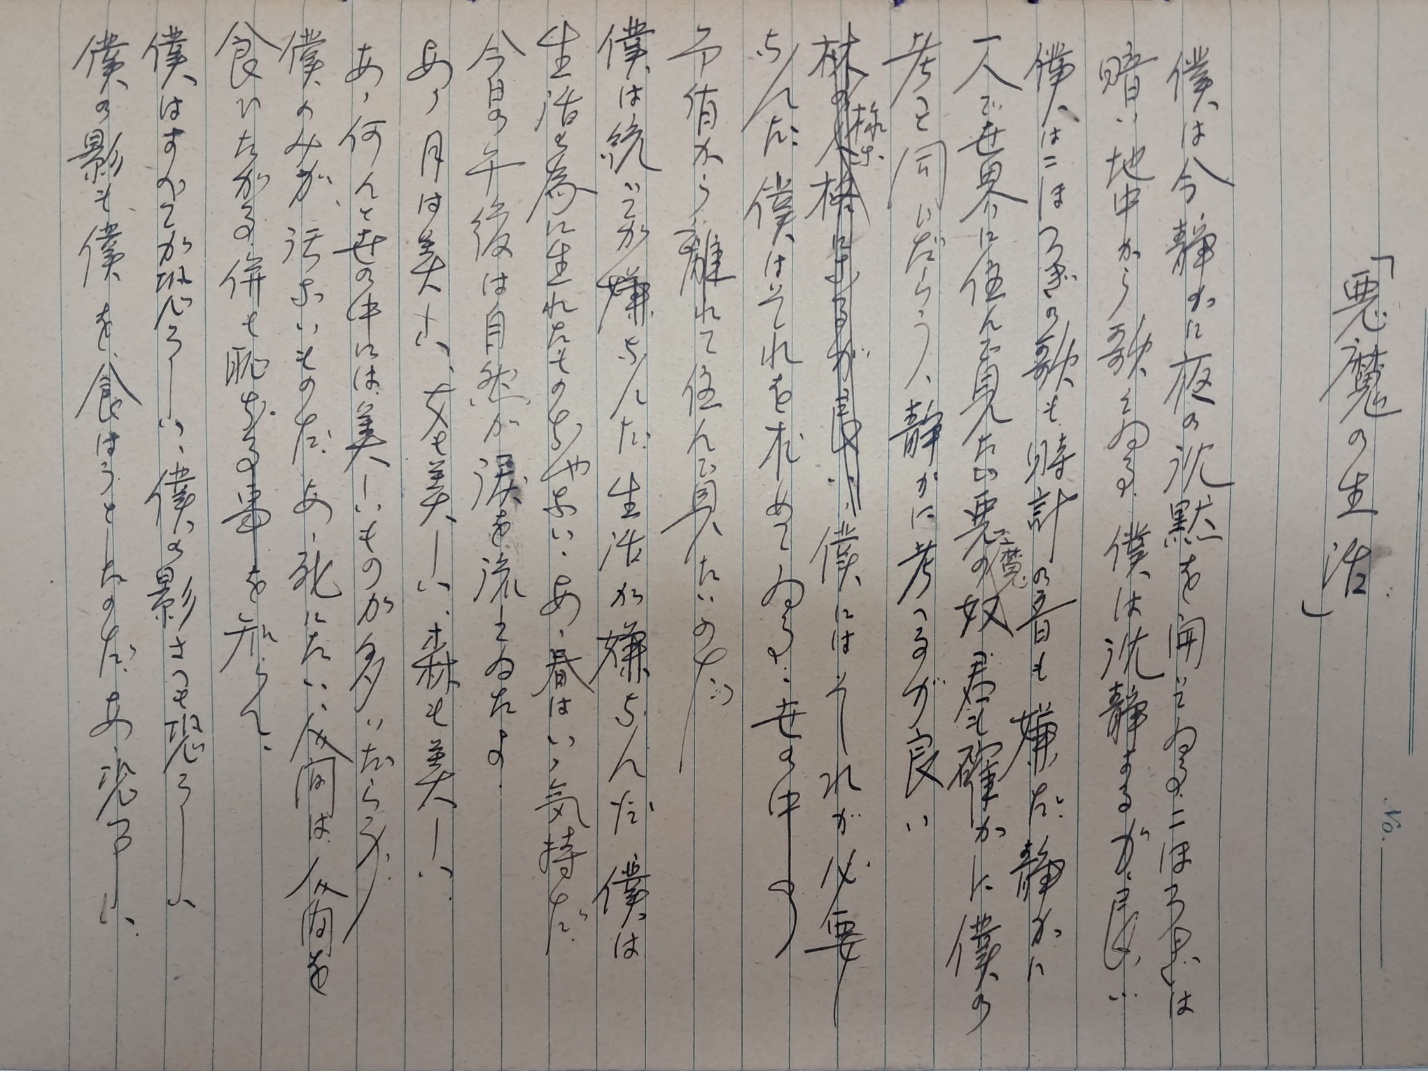 「悪魔の生活」
僕は今静かに夜の沈黙を聞いてゐる。こほろぎは
暗い地中から歌てゐる。僕は沈静するが良い
僕はこほろぎの歌も時計の音も嫌だ 静かに
一人で世界に住んで見たい 悪魔の奴 君も確かに僕の
考と同いだらう、静かに考へるが良い
林の 様 が良い 僕にはそれが必要
なんだ 僕はそれを求めてゐる、世の中の
から離れて住んで見たいのだ
僕は続いてが嫌なんだ 生活が嫌なんだ 僕は
生活を為に生れたものぢやない、あゝ春はいゝ気持だ
今日の午後は自然が涙を流してゐたよ
あゝ月は美しい、女も美しい、森も美しい
あゝ何んと世の中には美しいものが多いだらう
僕のみが 汚ないものだ あゝ死にたい 人間は人間を
食いたがる 併も恥ぢる事を知らん、
僕はすべてが恐ろしい、僕の影さへも恐ろしい
僕の影も僕を食はうとしたのだ あゝ恐ろしい、
No.